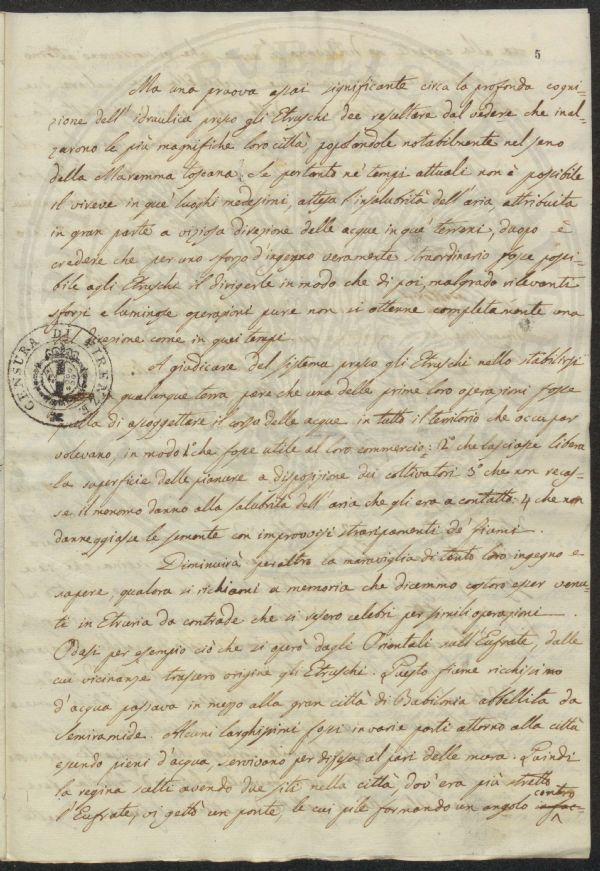 5
Ma una pruova assai significante circa la profonda cogni-
zione dell'idraulica presso gli Etruschi dee resultare dal vedere che inal-
zarono le più magnifiche loro città postandole notabilmente nel seno
della Maremma toscana. Se pertanto ne' tempi attuali non è possibile
il vivere in que' luoghi medesimi, attesa l'insalubrità dell'aria attribuita
in gran parte a viziosa direzione delle acque in que' terreni, duopo è
credere che per uno sforzo d'ingegno veramente straordinario fosse possi-
bile agli Etruschi il dirigerle in modo che di poi, malgrado rilevanti
sforzi e luminose operazioni pure non si ottenne completamente una
tal direzione come in quei tempi.
A giudicare del sistema presso gli Etruschi nello stabilirsi
qualunque terra, pare che una delle prime loro operazioni fosse
quella di assoggettare il corso delle acque in tutto il territorio che occupar
volevano, in modo 1º che fosse utile al loro commercio; 2º che lasciasse libera
la superficie delle pianure a disposizione dei coltivatori 3º che non recas-
se il menomo danno alla salubrità dell'aria che gli era a contatto. 4 che non
danneggiasse le semente con improvvisi straripamenti de' fiumi.
Diminuirà peraltro la maraviglia di tanto loro ingegno e
sapere, qualora si richiami a memoria che dicemmo costoro esser venu-
ti in Etruria da contrade che si resero celebri per simili operazioni.
Odasi per esempio ciò che si operò dagli Orientali sull'Eufrate, dalle
cui vicinanze trassero origine gli Etruschi. Questo fiume ricchissimo
d'acqua passava in mezzo alla gran città di Babilonia abbellita da
Semiramide. Alcuni larghissimi fossi in varie parti attorno alla città
essendo pieni d'acqua, servivano per difesa al pari delle mura. Quindi
la regina scelti avendo due siti nella città, dov'era più stretto
contro
l'Eufrate, vi gettò un ponte, le cui pile formando un angolo
CENSURA DI FIRENZE